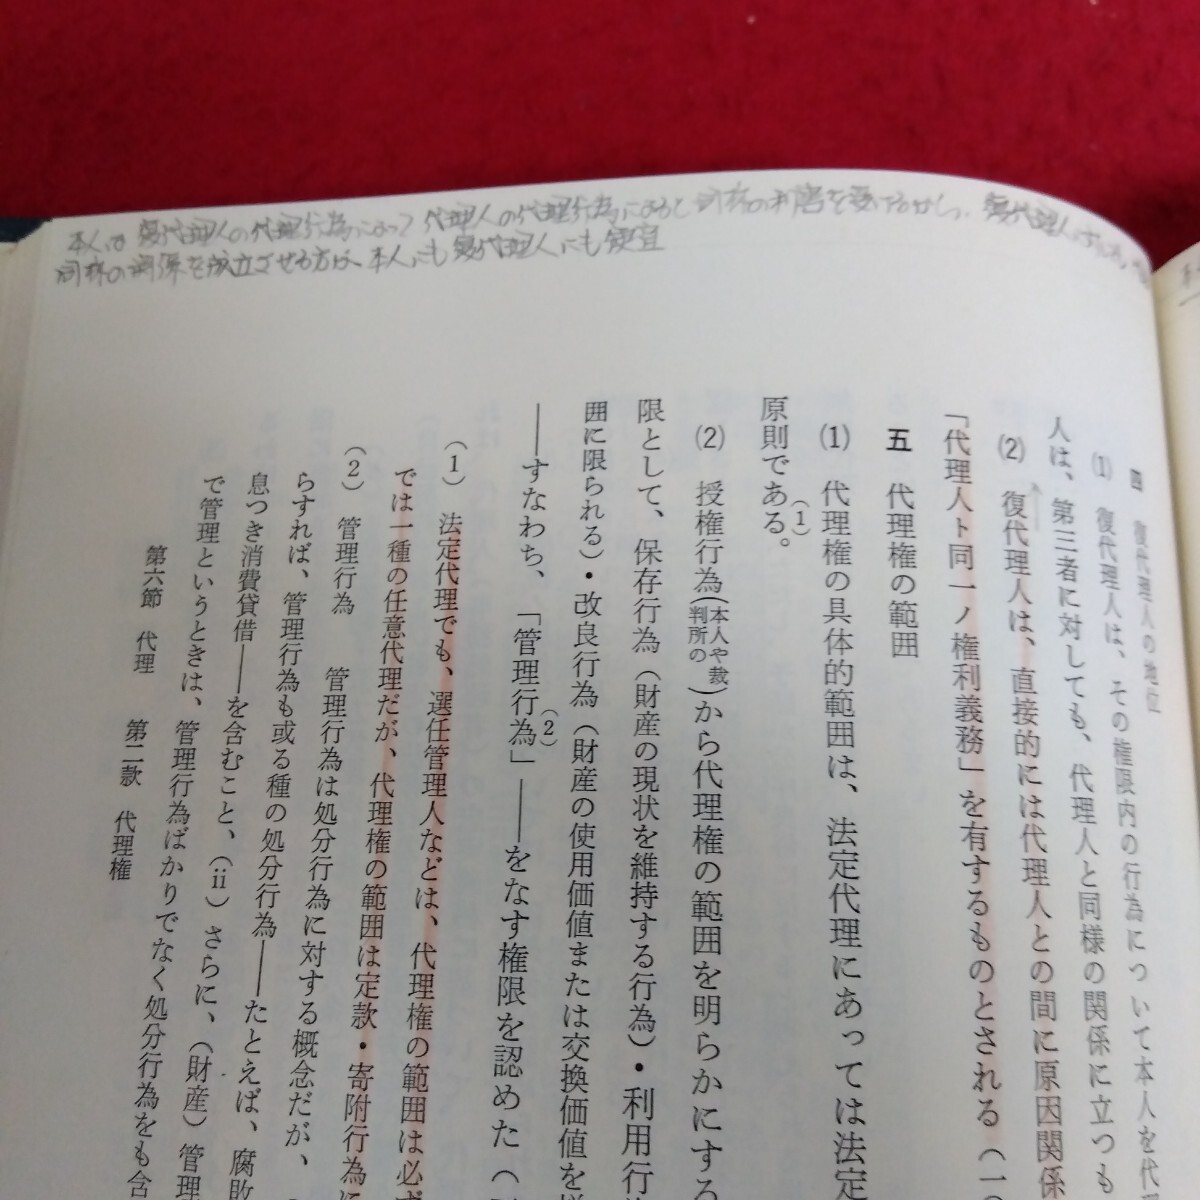 本人は復代理人の代理行為によって代理人の代理行為による
同様の関係を成立させる方は、本人にも復代理人にも便宜
四　復代理人の地位
(1)　復代理人は、その権限内の行為について本人を代
人は、第三者に対しても、代理人と同様の関係に立つも
(2)　復代理人は、直接的には代理人との間に原因関係
「代理人ト同一ノ権利義務」を有するものとされる（一〇
五　代理権の範囲
(1)　代理権の具体的範囲は、法定代理にあっては法定
原則である。(1)
(2)　授権行為（本人や裁判所の）から代理権の範囲を明らかにする
限として、保存行為（財産の現状を維持する行為）・利用行
囲に限られる）・改良行為（財産の使用価値または交換価値を
――すなわち、「管理行為」(2)――をなす権限を認めた（
（1）　法定代理でも、選任管理人などは、代理権の範囲は必ず
では一種の任意代理だが、代理権の範囲は定款・寄附行為に
（2）　管理行為　管理行為は処分行為に対する概念だが、
らすれば、管理行為も或る種の処分行為――たとえば、腐敗
息つき消費貸借――を含むこと、(ii)さらに、（財産）管理
で管理というときは、管理行為ばかりでなく処分行為をも含
第六節　代理　第二款　代理権